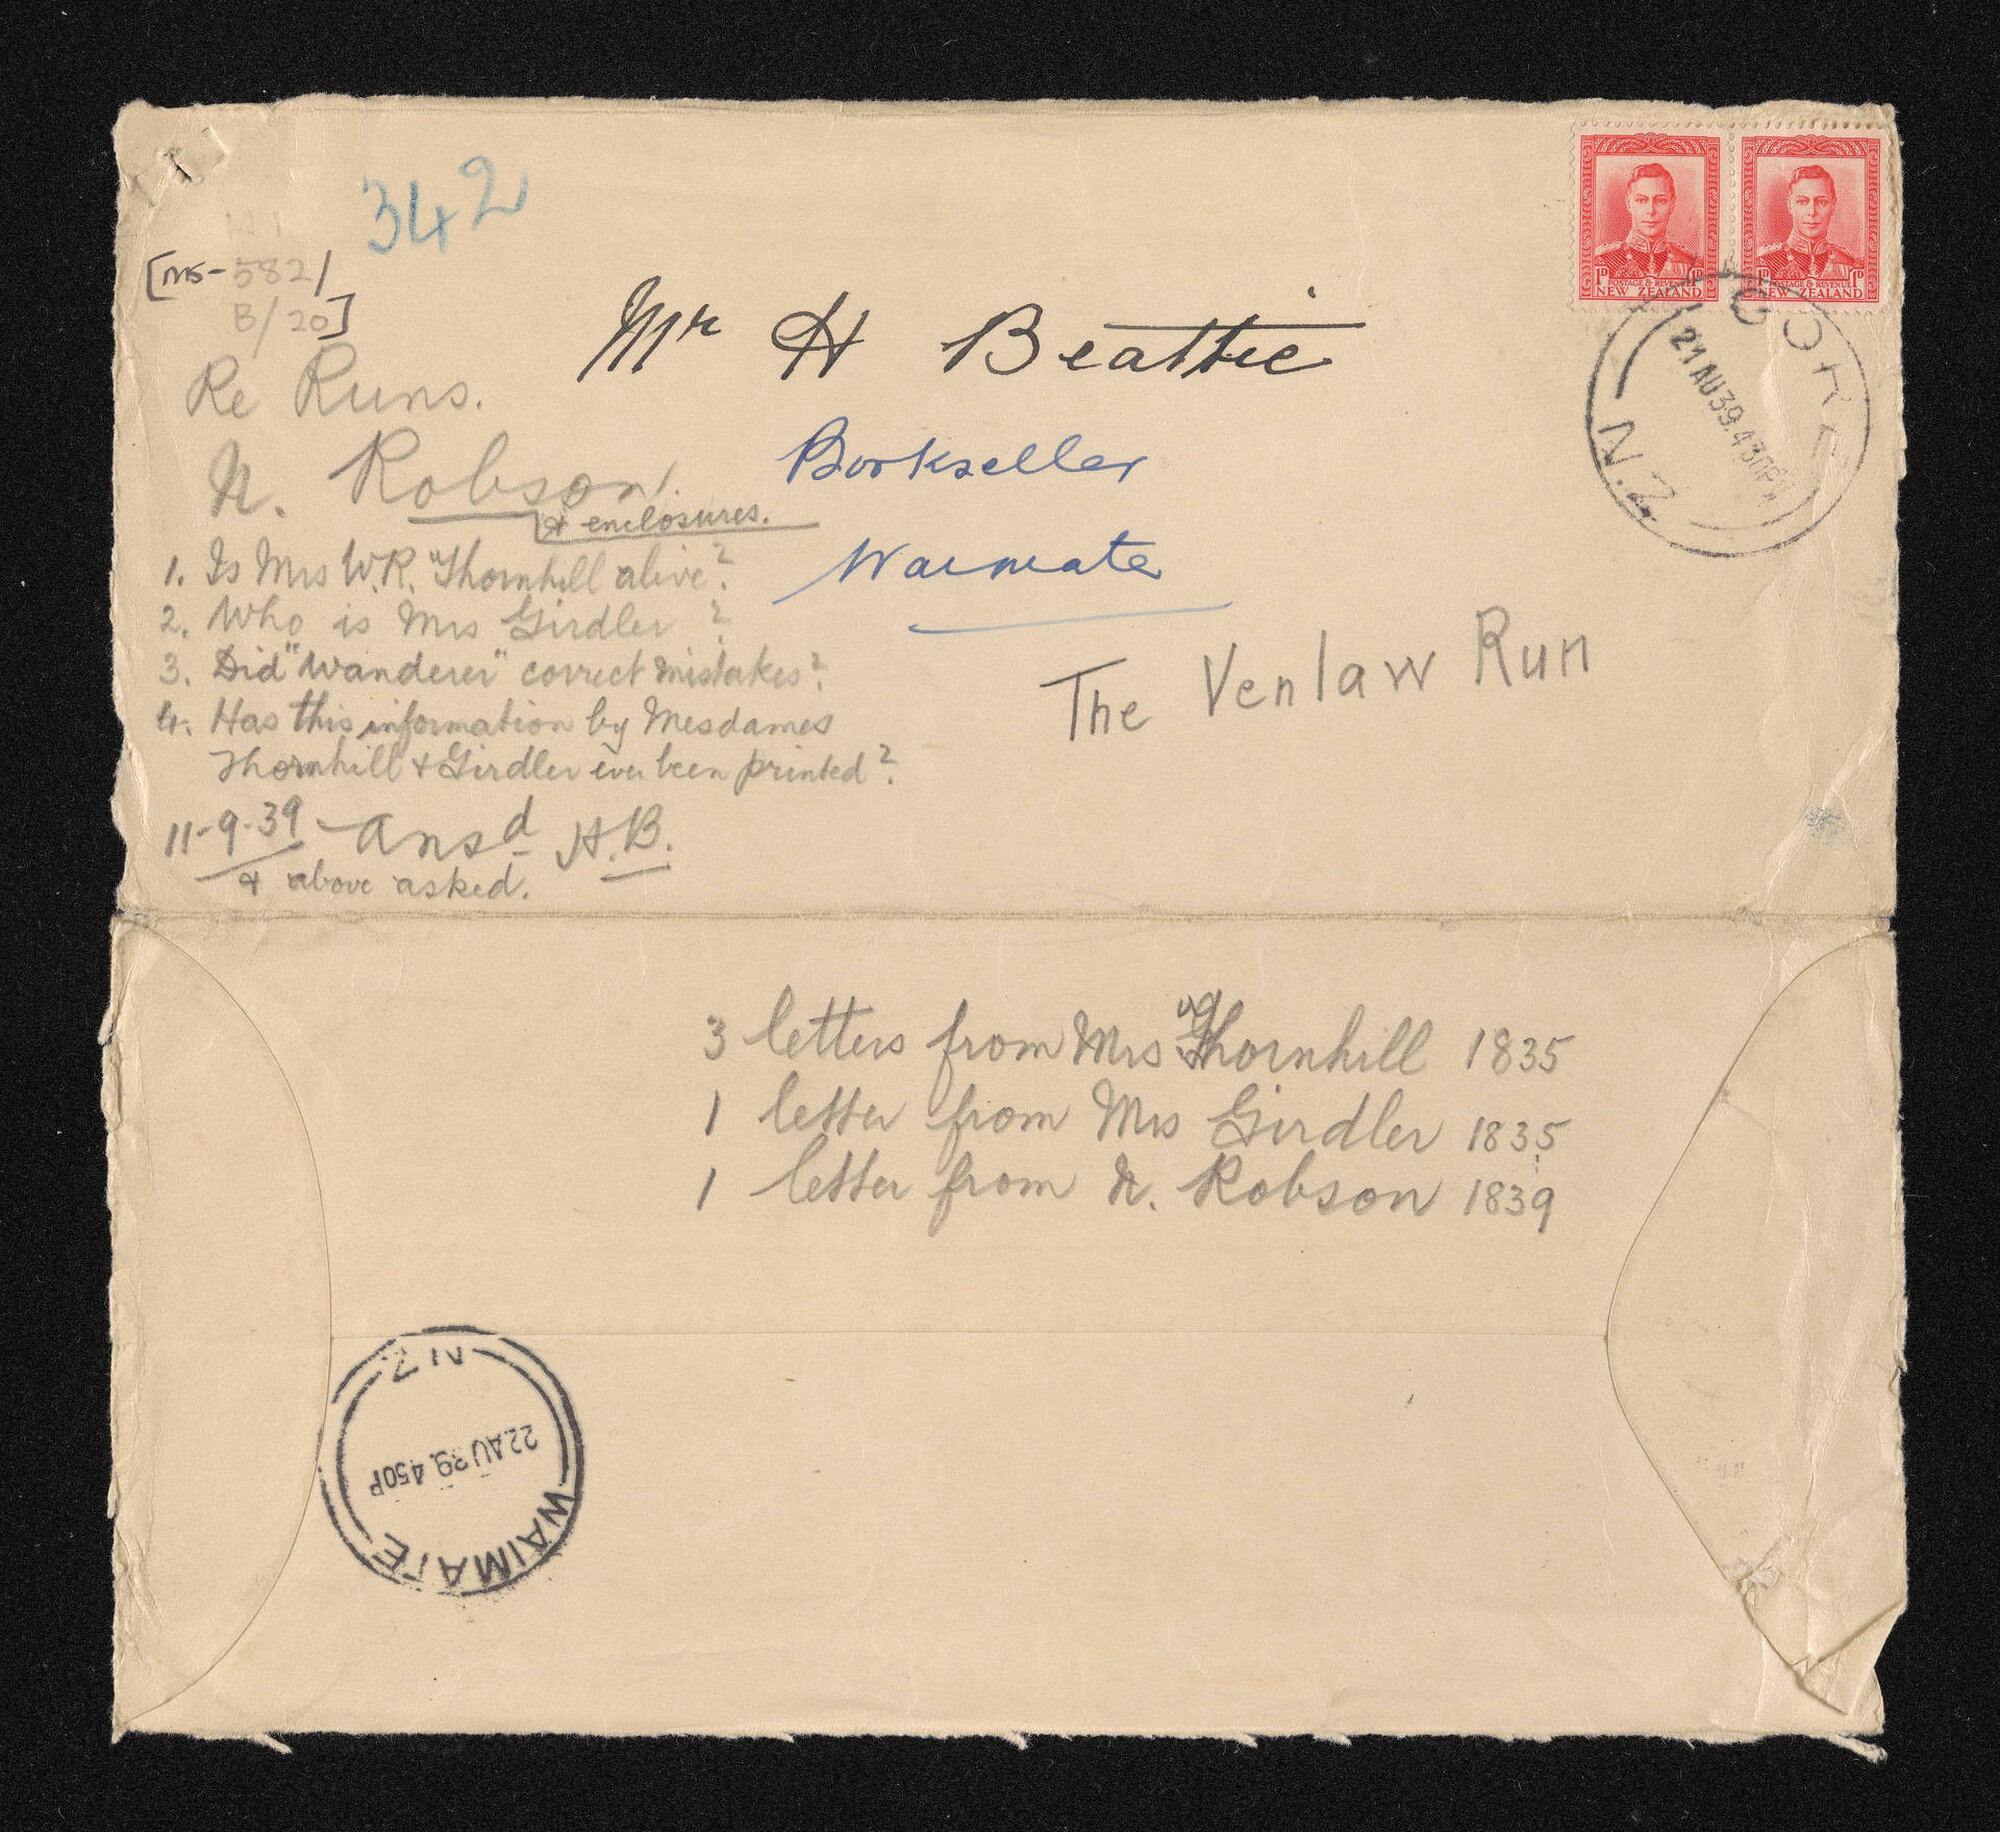 342
[MS-582/
B/20]
Re Runs.
N. Robson.
& enclosures.
1. Is Mrs W.R. Thornhill alive?
2. Who is Mrs Girdler ?
3. Did "Wanderer" correct mistakes?
4. Has this information by Mesdames
Thornhill & Girdler ever been printed?
11-9-39 - Ansd H.B.
& above asked.
Mr H Beattie
Bookseller
Waimate
The Venlaw Run
1D 1D
POSTAGE & REVENUE
NEW ZEALAND
1D 1D
POSTAGE & REVENUE
NEW ZEALAND
GORE
21 AU 39. 430PM
N.Z
3 letters from Mrs Thornhill 1835
1 letter from Mrs Girdler 1835
1 letter from N. Robson 1839
WAIMATE
22 AU 39. 450P
N.Z